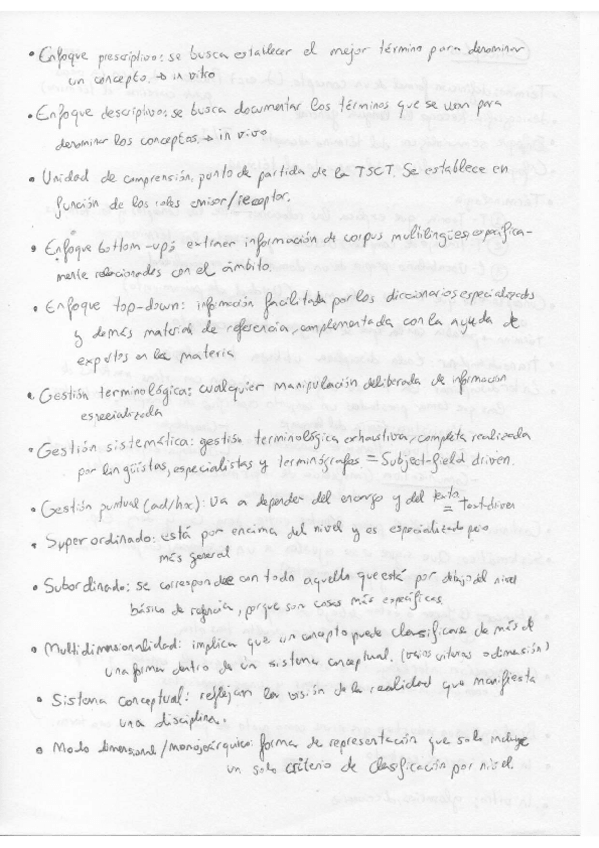 • Enfoque prescriptivo: se busca establecer el mejor término para denominar
un concepto. → in vitro
• Enfoque descriptivo: se busca documentar los términos que se usan para
denominar los conceptos. → in vivo
• Unidad de comprensión: punto de partida de la TSCT. Se establece en
función de los roles emisor/receptor.
• Enfoque bottom-up: extraer información de corpus multilingües, específica-
mente relacionados con el ámbito.
• Enfoque top-down: información facilitada por los diccionarios especializados
y demás material de referencia, complementada con la ayuda de
expertos en la materia
• Gestión terminológica: cualquier manipulación deliberada de información
especializada
• Gestión sistemática: gestión terminológica exhaustiva, completa realizada
por lingüistas, especialistas y terminógrafos = Subject-field driven.
• Gestión puntual (ad/hoc): va a depender del encargo y del texto = text-driven
• Superordinado: está por encima del nivel y es especializado pero
más general
• Subordinado: se corresponde con todo aquello que está por debajo del nivel
básico de referencia, porque son cosas más específicas.
• Multidimensionalidad: implica que un concepto puede clasificarse de más de
una forma dentro de un sistema conceptual. (varios criterios o dimensión)
• Sistema conceptual: reflejan la visión de la realidad que manifiesta
una disciplina.
• Modo dimensional/monojerárquico: forma de representación que solo incluye
un solo criterio de clasificación por nivel.